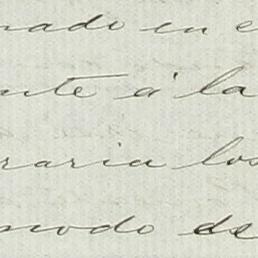 nado en e
nte á la
raria los
modo de